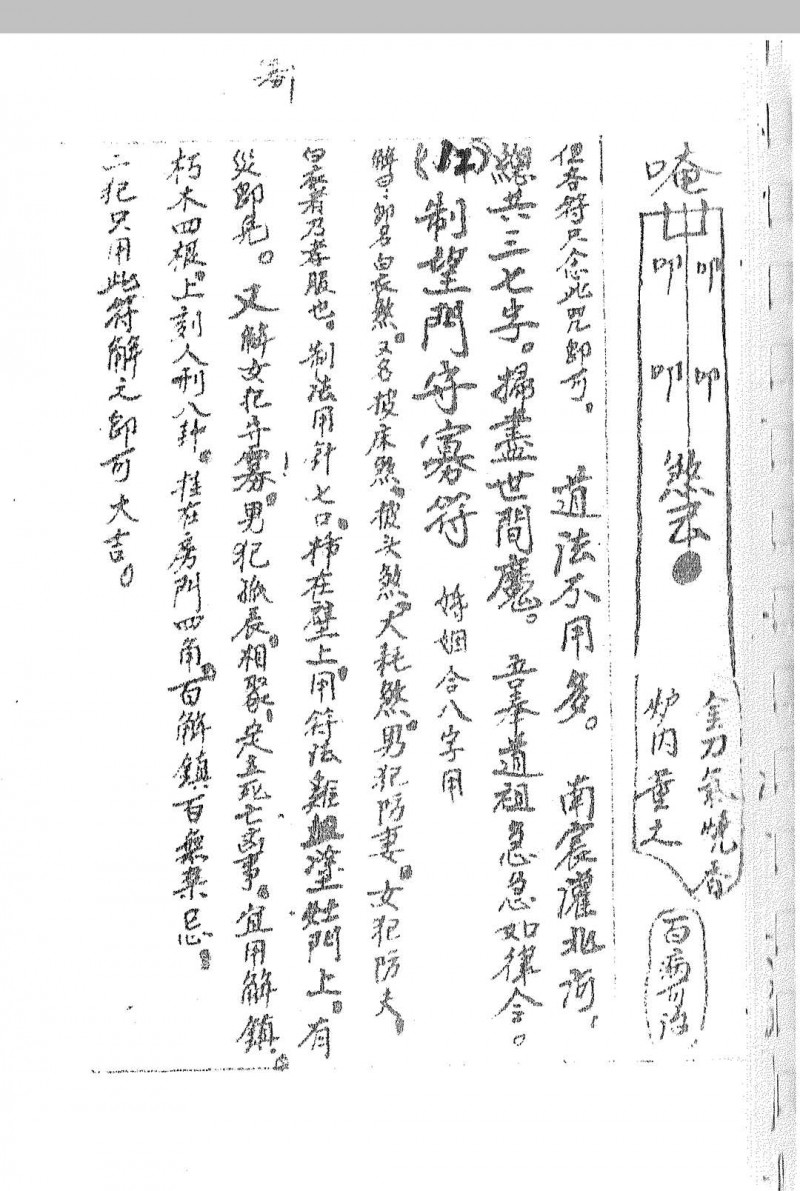 唵
叩 叩
叩 叩
煞
金刀氣燒香
炉内薰之
百病可治
但各符只念此咒即可。 道法不用多。 南宸灌北河，
總共三七字。掃盡世間魔。 吾奉道祖急急如律令。
(12) 制望門守寡符 婚姻合八字用
解曰：即名白衣煞。又名披床煞。披头煞。大耗煞。男犯防妻。女犯防夫。
白衣者乃孝服也。制法用針七口。插在壁上。用符法雞血塗在門上。有
災即免。 又解女犯守寡。男犯孤辰。相聚，定主死亡凶事。宜用解鎮。
朽木四根。上刻人刑八卦。挂在房門四角。百解鎮百無禁忌。
二犯只用此符解之即可大吉。